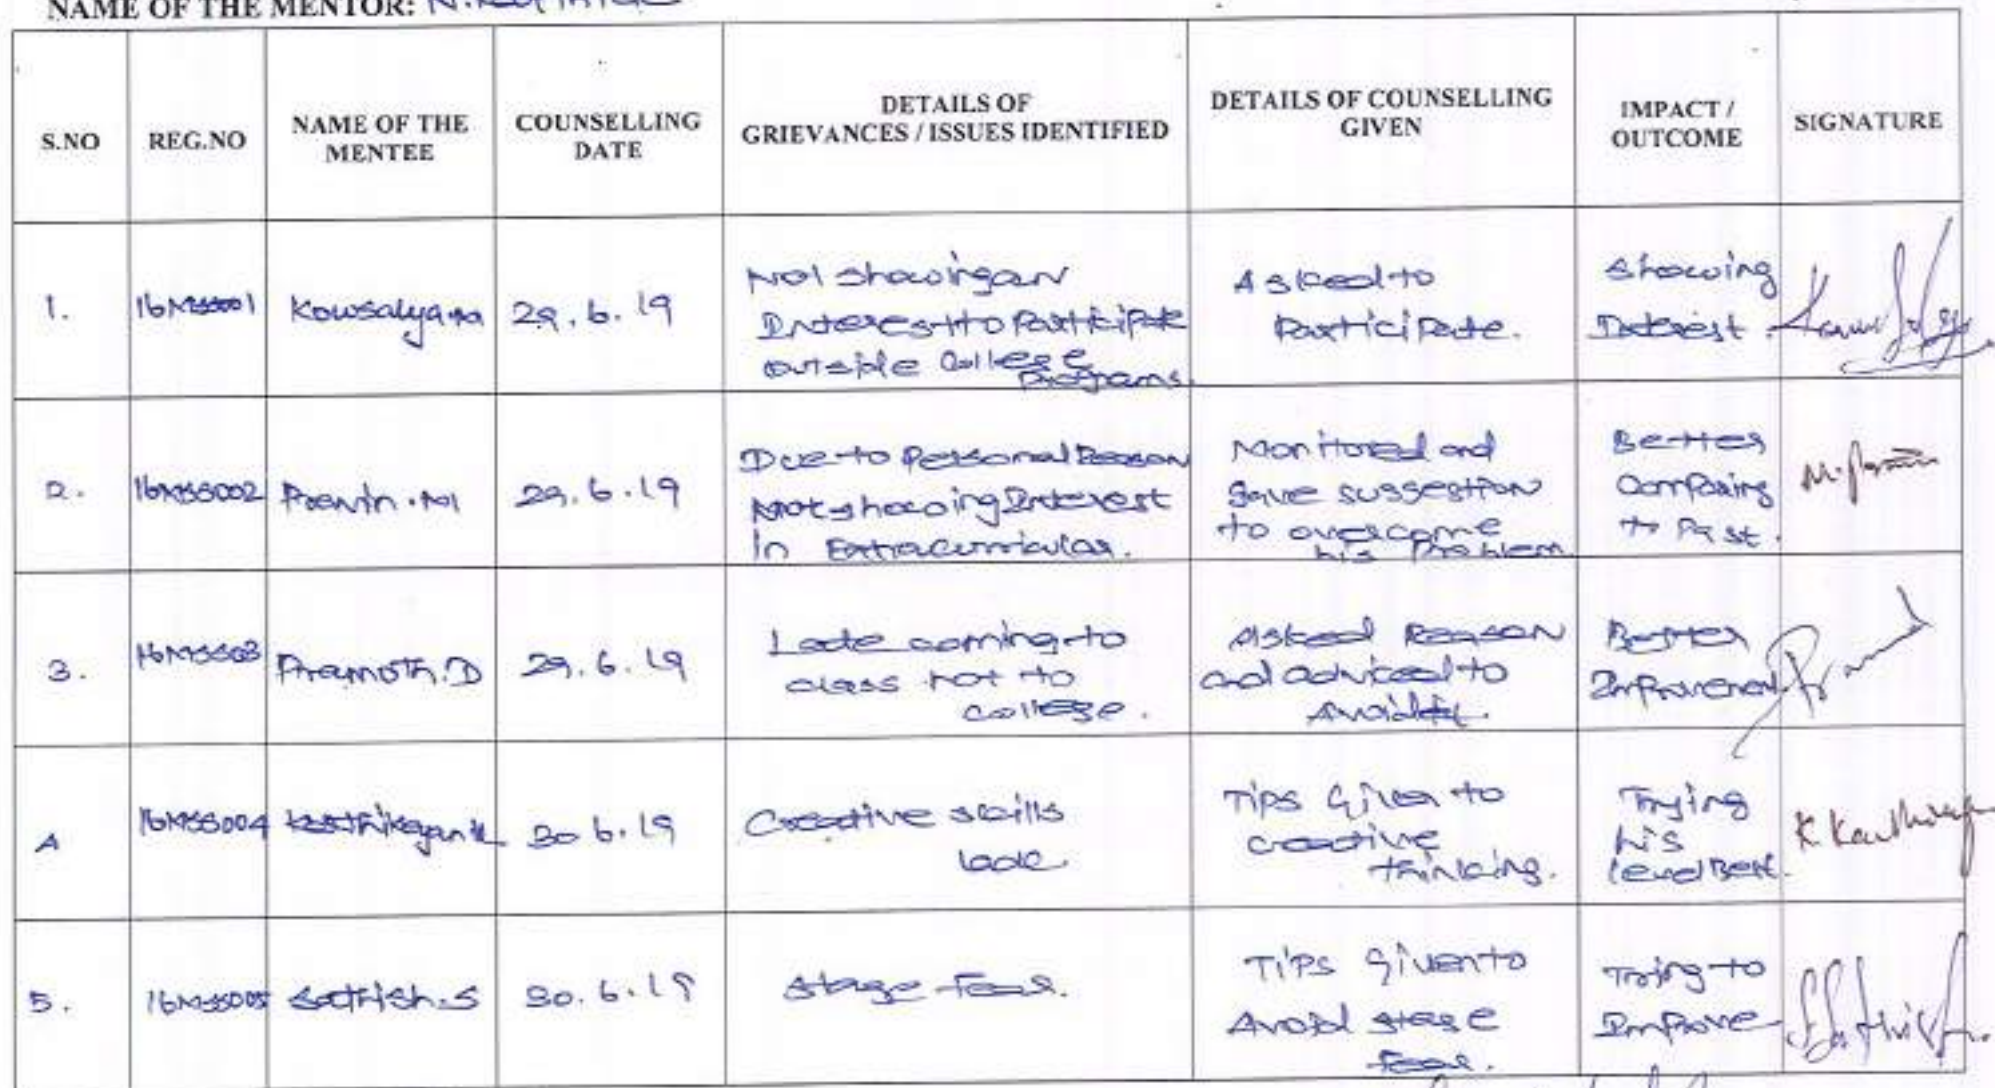 NAME OF THE MENTOR:
S.NO REG.NO NAME OF THE MENTEE COUNSELLING DATE DETAILS OF GRIEVANCES / ISSUES IDENTIFIED DETAILS OF COUNSELLING GIVEN IMPACT / OUTCOME SIGNATURE
1. 16MSS001 Kowsalya.M 29.6.19
Not showingan
Interest to Participate
outside College
Programs.
Asked to
Participate.
showing
Interest.
2. 16MSS002 Pravin.M 29.6.19
Due to Personal Reason
Not showing Interest
in Extracurricular.
Monitored and
gave suggestion
to overcome
his Problem
Better
Comparing
to Past.
3. 16MSS003 Pramoth.D 29.6.19
Late coming to
class not to
college.
Asked Reason
and adviced to
Avoid it.
Better
Improvement
4 16MSS004 Karthikeyan.K 30.6.19
Creative skills
lack.
Tips Given to
creative
thinking.
Trying
his
level Best.
K.Karthikeyan
5. 16MSS005 Sathish.S 30.6.19
Stage Fear.
Tips Given to
Avoid stage
Fear.
Trying to
Improve